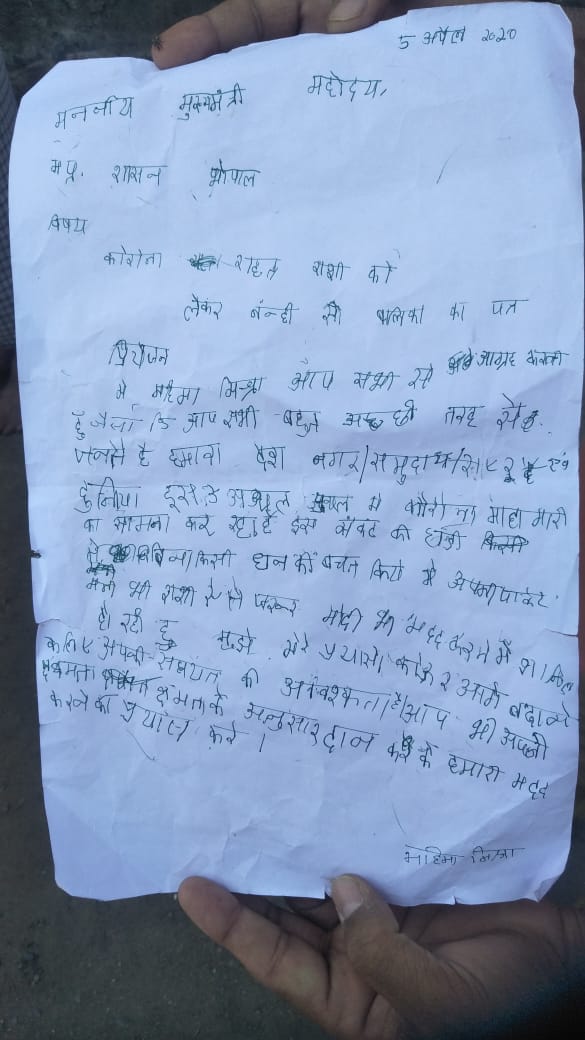 5 अप्रैल 2020
मनजीय मुख्यमंत्री महोदय,
मप्र. शासन भोपाल
विषय
कोरोना राहत राशी को
लेकर बन्दी सी बालिका का पत
प्रियजन
मे महिमा मिश्रा आप सभी से आग्रह करती
हूँ जैसा कि आप सभी बहुत अच्छी तरह से
जनते है हमारा देश नगर/समुदाय/
दुनिया इस समय में कोरोना माहा मारी
का सामना कर रहा है इस संकट की घड़ी
बिना किसी धन की बचत किये मे अपनी पाकेट
मनी की राशी से मोदी की मदद करने में शामिल
हो रही हु मुझे मेरे प्रयासो को और आगे बढाने
के लिए आपकी की आवश्कता है। आप भी अपनी
क्षमता के अनुसार दान करके हमारी मदद
करने का प्रयास करे।
महिमा मिश्रा